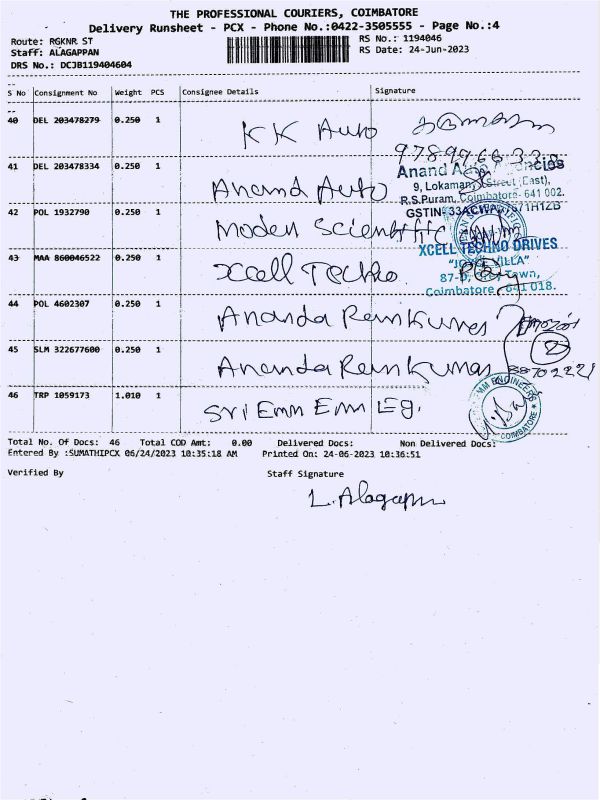 THE PROFESSIONAL COURIERS, COIMBATORE
Delivery Runsheet - PCX - Phone No.:0422-3505555 - Page No.:4
Route: RGKNR ST
RS No.: 1194046
Staff: ALAGAPPAN
RS Date: 24-Jun-2023
DRS No.: DCJB119404604
S No Consignment No Weight PCS Consignee Details Signature
40 DEL 203478279 0.250 1 KK Auto
41 DEL 203478334 0.250 1 Anand Auto
Anand
9, Lokamanya Street (East),
R.S.Puram, Coimbatore- 641 002.
42 POL 1932790 0.250 1 Moden Scientific
43 MAA 860046522 0.250 1 Xcell Techno
XCELL TECHNO DRIVES
Town,
Coimbatore - 641 018.
44 POL 4602307 0.250 1 Ananda Ramkumar
45 SLM 322677600 0.250 1 Ananda Ramkumar
46 TRP 1059173 1.010 1 Sri Emm Emm Eg.
ENGINEERS
COIMBATORE
Total No. Of Docs: 46 Total COD Amt: 0.00 Delivered Docs: Non Delivered Docs:
Entered By :SUMATHIPCX 06/24/2023 10:35:18 AM Printed On: 24-06-2023 10:36:51
Verified By Staff Signature
L. Alagappan